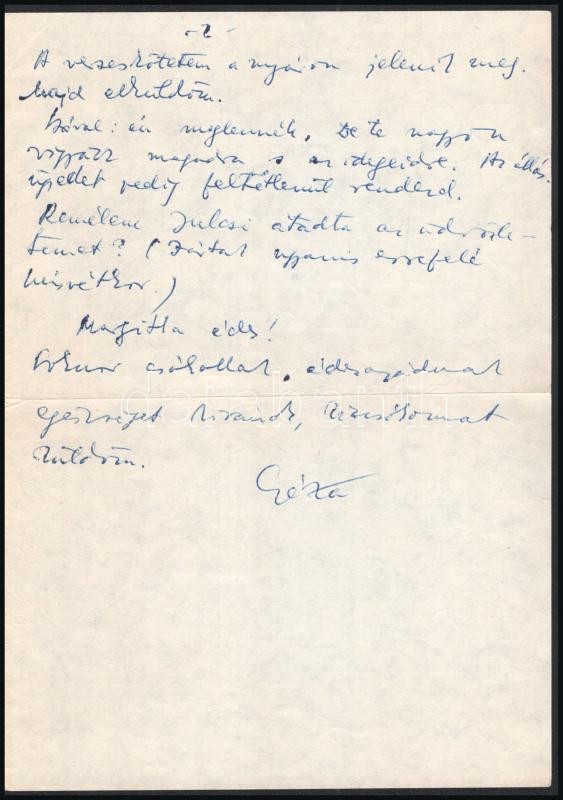 -2-
A verseskötetem a nyáron jelenik meg.
Majd elküldöm.
Szóval: én meglennék. De te nagyon
vigyázz magadra s az idegeidre. Az állás-
ügyedet pedig feltétlenül rendezd.
Remélem Julcsi átadta az üdvözle-
temet? (Jártak ugyanis errefelé
húsvétkor.)
Margitka édes!
Sokszor csókollak, édesanyádnak
egészséget kívánok, kézcsókomat
küldöm.
Géza
darabanth